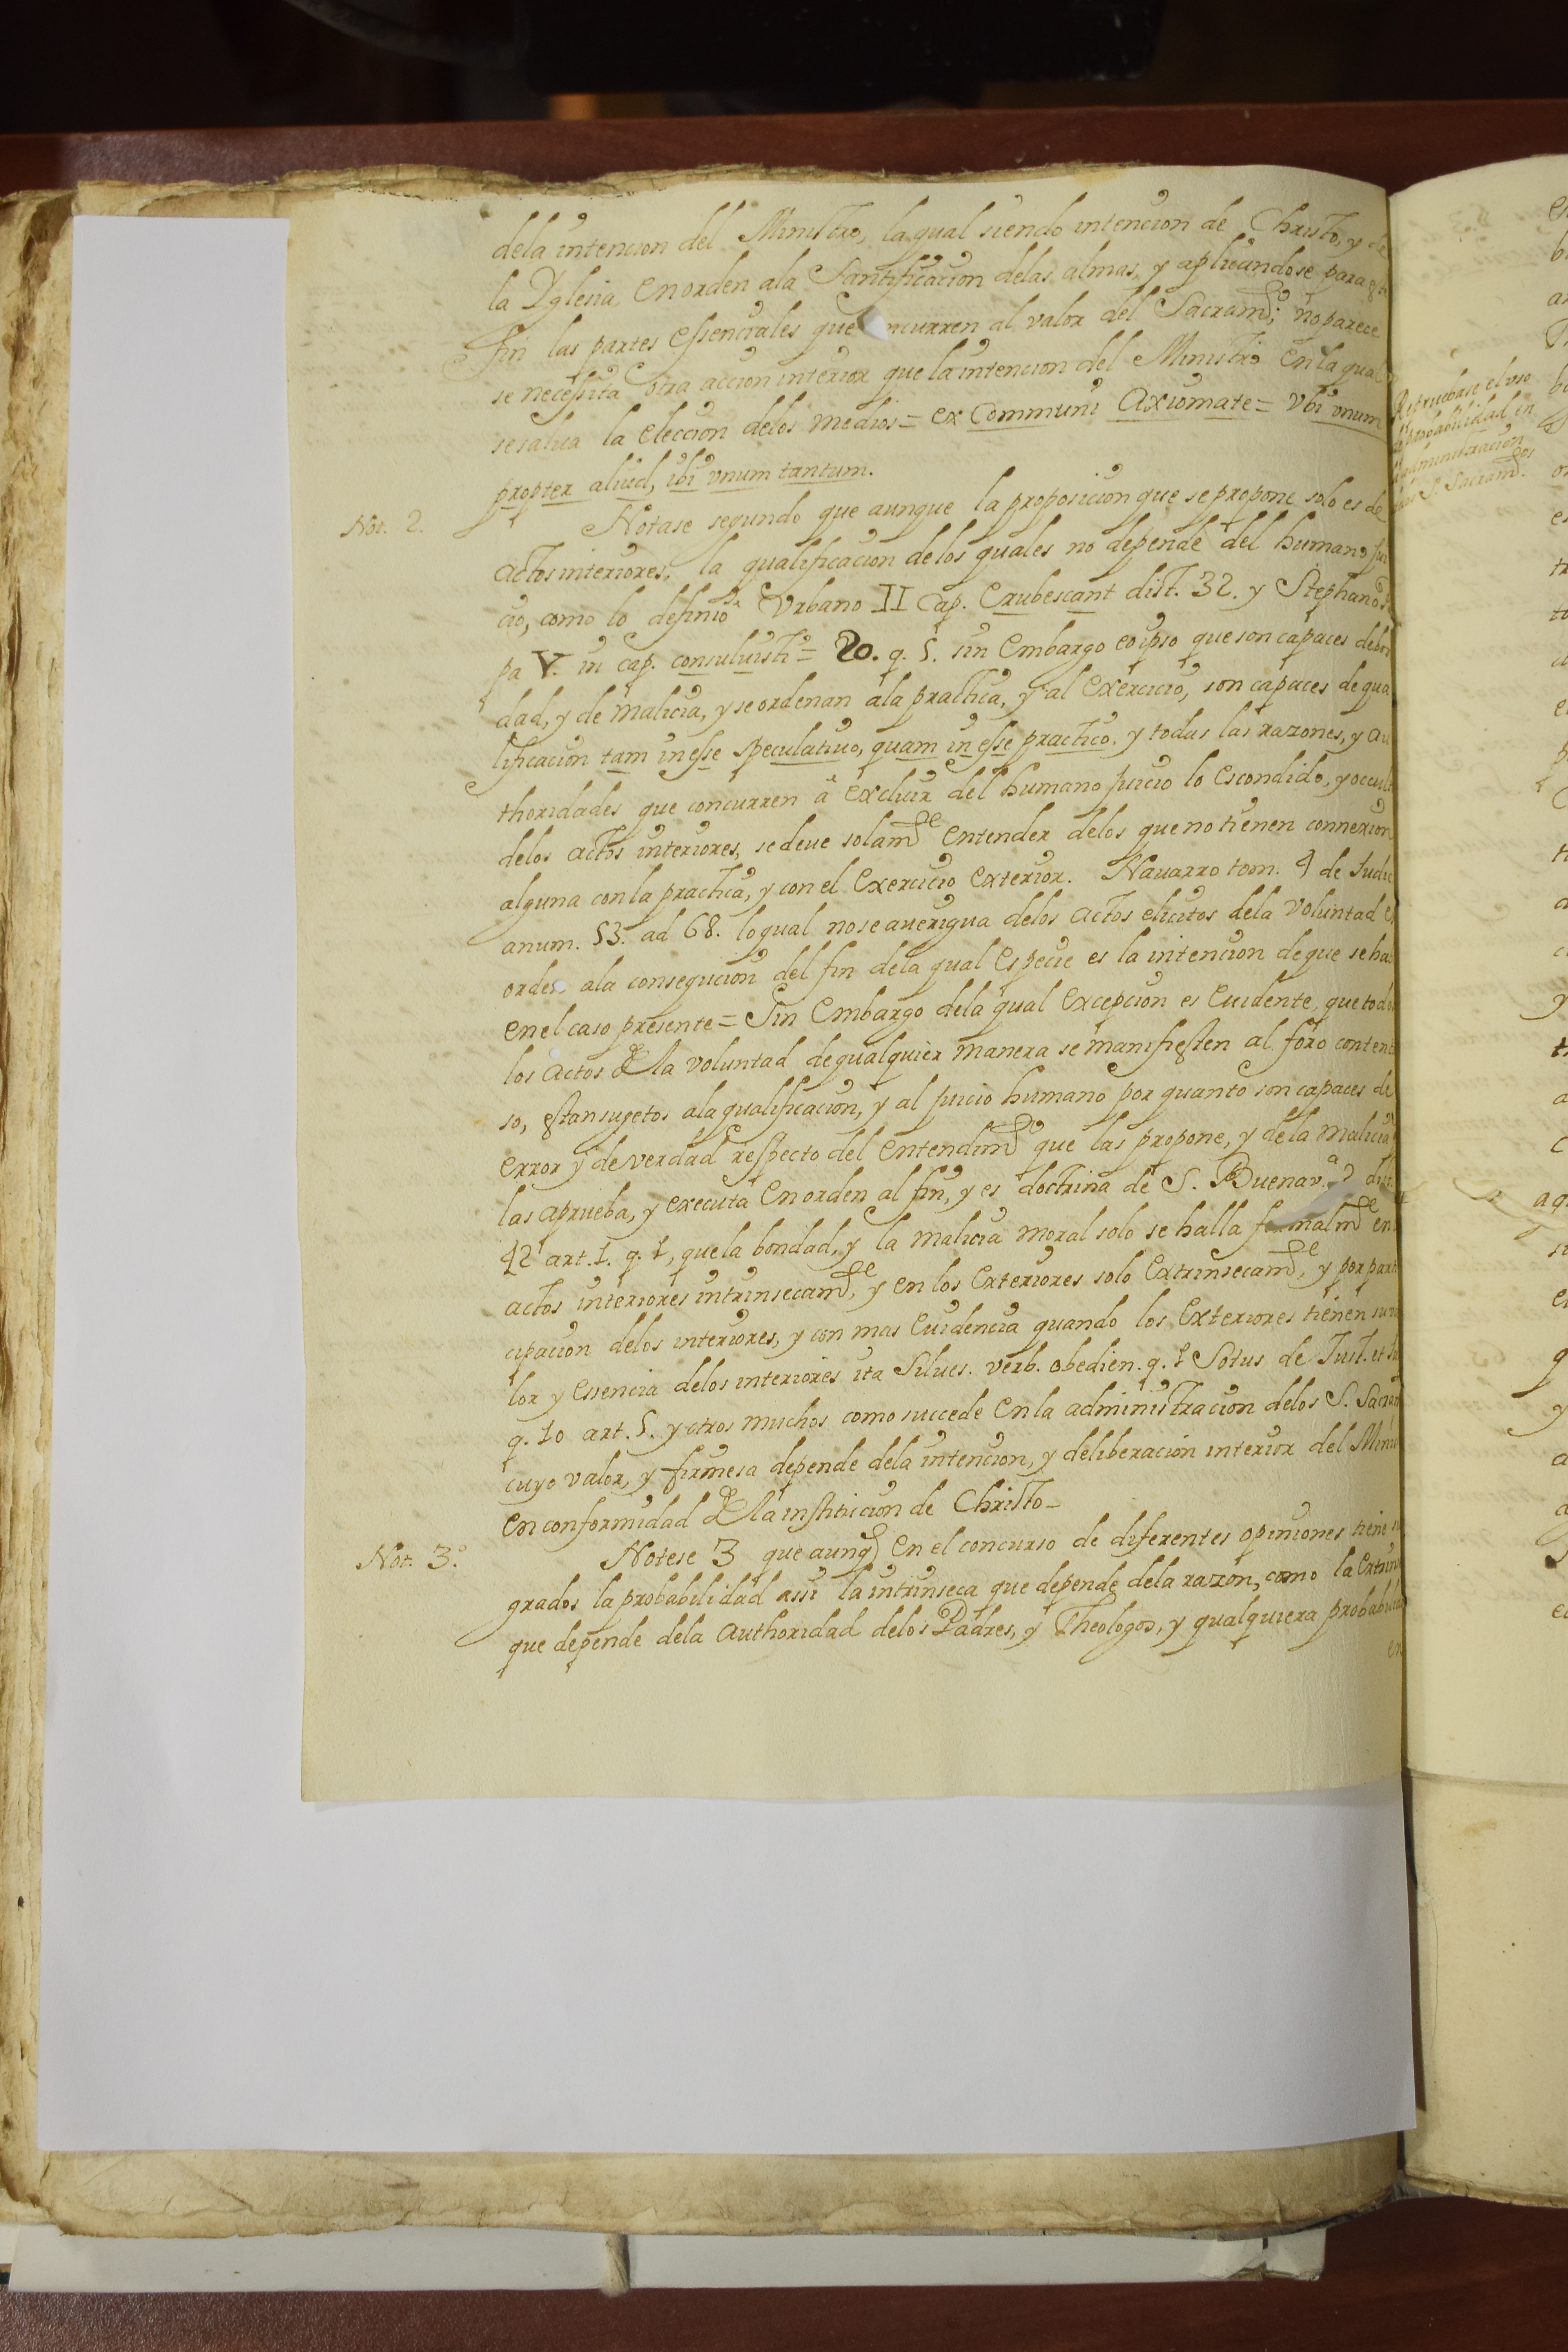 dela intencion del Ministro, laqual siendo intencion de Christo, y de
la Yglesia en orden ala Santificacion delas almas, y aplicandose para
fin las partes essenciales que ncurren al valor del Sacram.to; no parece
se necessita otra accion interior que la intencion del Ministro en la qual
se salva la eleccion delos medios = ex Communi Axiomate = Vbi vnum
propter aliud, ibi vnum tantum.
Not. 2. Notase segundo que aunque la proposicion que se propone solo es de
actos interiores, la qualificacion delos quales no depende del humano jui
cio, como lo definiò Vrbano II Cap. Erubescant dist. 32. y Stephano
pa V. in cap. consuluisti = 20. q. 5. sin embargo eoipso que son capaces de bon
dad, y de malicia, y se ordenan ala practica, y al exercicio, son capaces de qua
lificacion tam in esse speculativo, quam in esse practico, y todas las razones, y au
thoridades que concurren â excluir del humano juicio lo escondido, y occul
delos actos interiores, se deve solam.te entender delos que no tienen connexion
alguna con la practica, y con el exercicio exterior. Navarro tom. 4 de Judic
anum. 53. ad 68. lo qual no se averigua delos actos elicitos dela voluntad e
orden ala consegucion del fin dela qual especie es la intencion de que se ha
en el caso presente = Sin embargo dela qual excepcion es evidente que todos
los actos de la voluntad de qualquier manera se manifiesten al foro conten
so, estan sugetos ala qualificacion, y al juicio humano por quanto son capaces de
error y de verdad respecto del entendim.to que las propone, y dela malicia
las aprueba, y executa en orden al fin, y es doctrina de S. Buenav.a dist.
42 art. 1. q. 1, que la bondad, y la malicia moral solo se halla formalm.te en
actos interiores intrinsecam.te, y en los exteriores solo extrinsecam.te, y por parti
cipacion delos interiores, y con mas evidencia quando los exteriores tienen su va
lor y essencia delos interiores ita Silves. verb. obedien. q. 1 Sotus de Just. et
q. 10 art. 5. y otros muchos como succede en la administracion delos S. Sacram
cuyo valor, y firmesa depende dela intencion, y deliberacion interior del Minis
en conformidad de la institucion de Christo _
Not. 3.o Notese 3 que aunq en el concurso de diferentes opiniones tiene
grados la probabilidad assi la intrinseca que depende dela razon, como la extrin
que depende dela authoridad delos Padres, y Theologos, y qualquiera probabilid
en
Repruebase el vso
probabilidad en
administracion
S. Sacram.tos